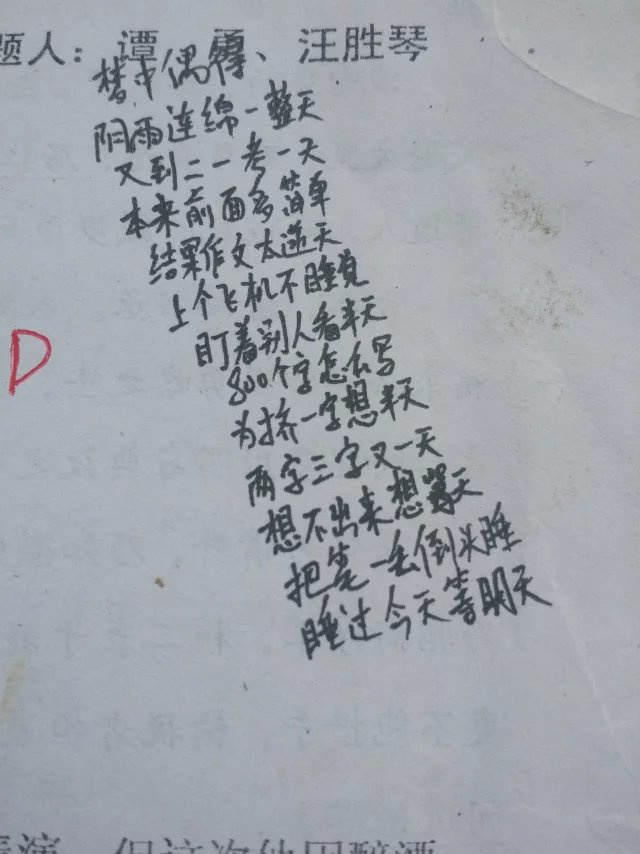 题人：谭 勇、汪胜琴
梦中偶得
阴雨连绵一整天
又到二一考一天
本来前面多简单
结果作文太逆天
上个飞机不睡觉
盯着别人看半天
800个字怎么写
为挤一字想半天
两字三字又一天
想不出来想骂天
把笔一丢倒头睡
睡过今天等明天
D